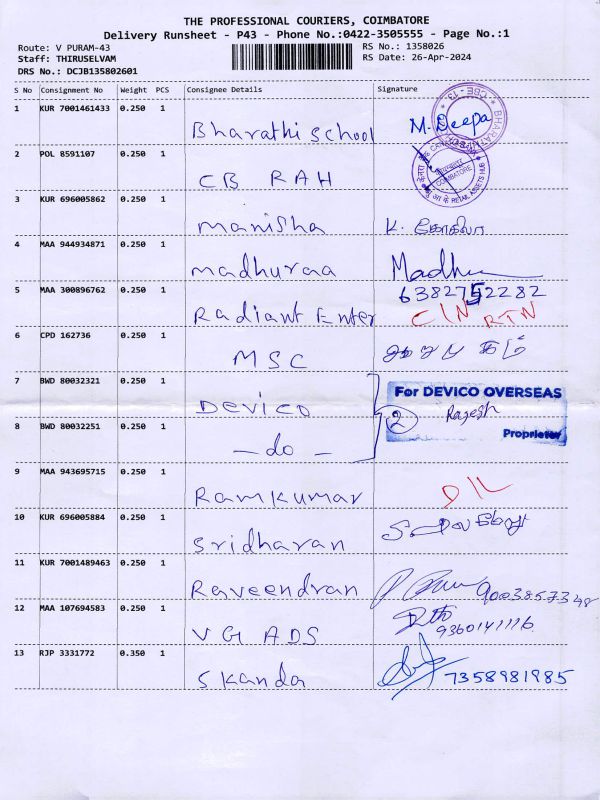 THE PROFESSIONAL COURIERS, COIMBATORE
Delivery Runsheet - P43 - Phone No.:0422-3505555 - Page No.:1
Route: V PURAM-43 RS No.: 1358026
Staff: THIRUSELVAM RS Date: 26-Apr-2024
DRS No.: DCJB135802601
S No Consignment No Weight PCS Consignee Details Signature
1 KUR 7001461433 0.250 1 Bharathi School M. Deepa
2 POL 8591107 0.250 1 CB RAH
COIMBATORE
RETAIL ASSETS HUB
3 KUR 696005862 0.250 1 Manisha K. கோகிலா
4 MAA 944934871 0.250 1 madhuraa Madhu
6382752282
5 MAA 300896762 0.250 1 Radiant Enter C/N RTN
6 CPD 162736 0.250 1 MSC
7 BWD 80032321 0.250 1 Devico For DEVICO OVERSEAS
2 Rajesh
Proprietor
8 BWD 80032251 0.250 1 - do -
9 MAA 943695715 0.250 1 Ramkumar D/L
10 KUR 696005884 0.250 1 Sridharan
11 KUR 7001489463 0.250 1 Raveendran 9003857348
12 MAA 107694583 0.250 1 VG ADS 9360141116
13 RJP 3331772 0.350 1 Skanda 7358981985